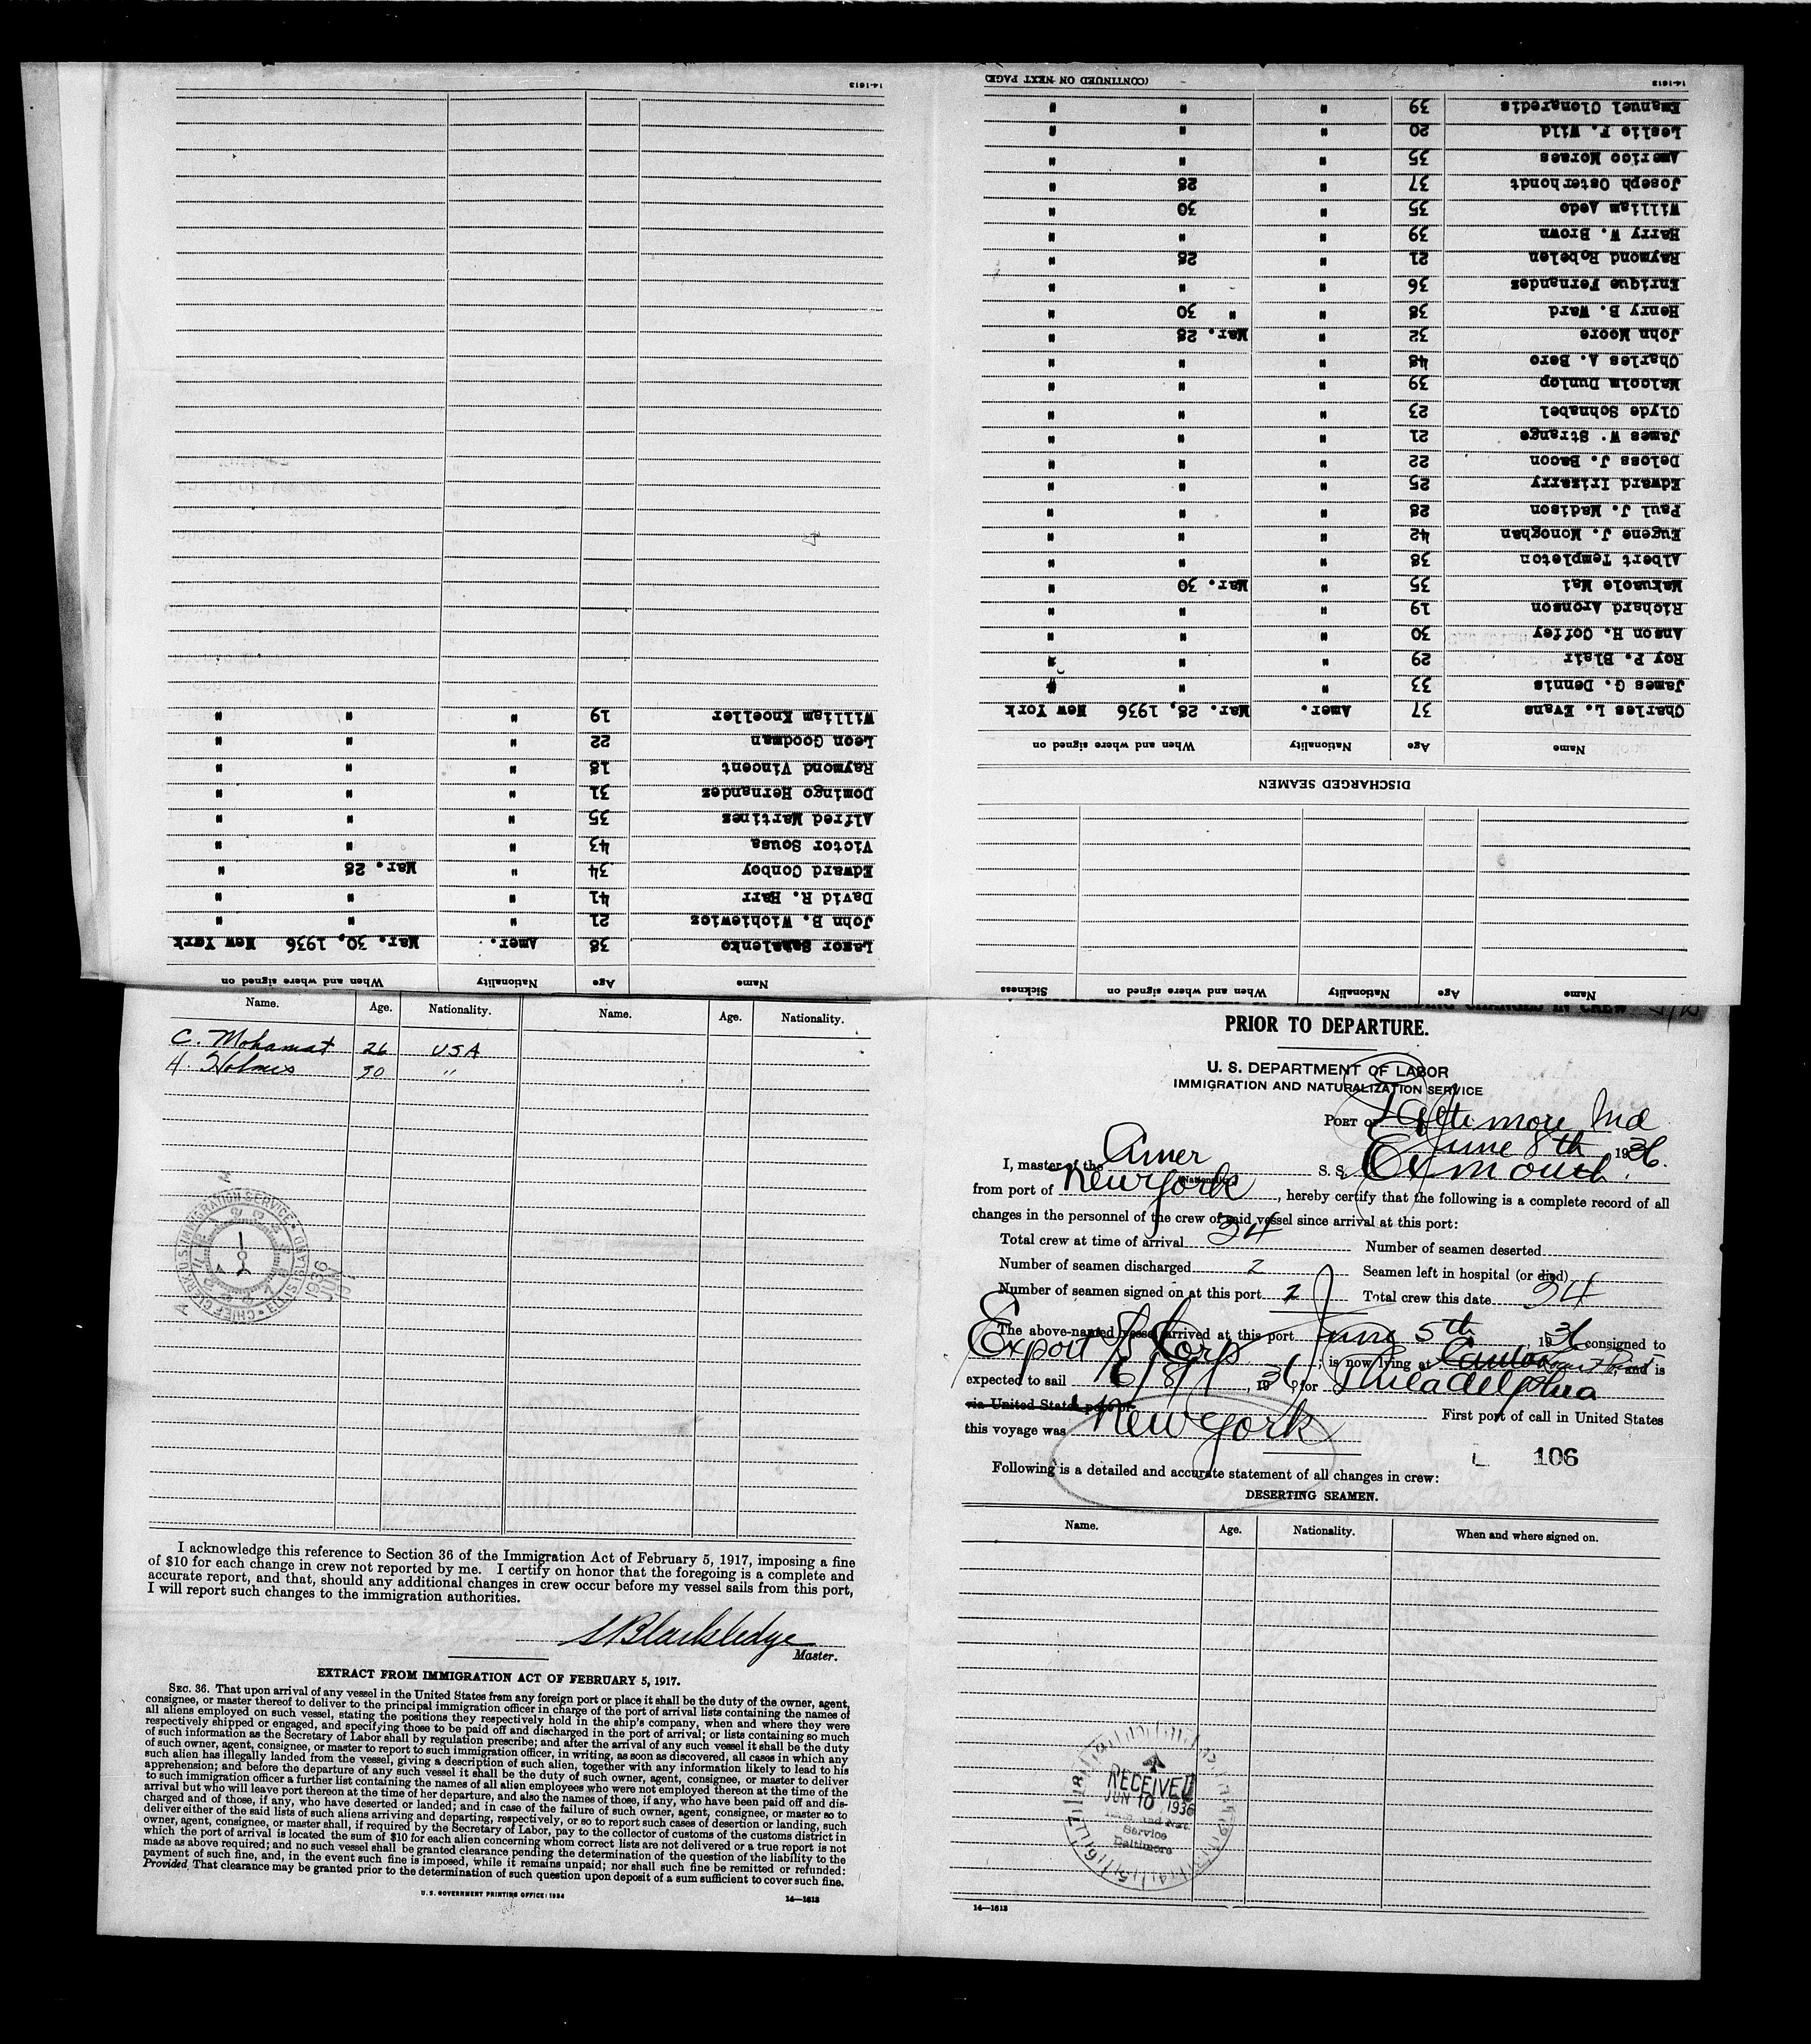 Name Age Nationality When and where signed on Sickness
DISCHARGED SEAMEN
Name Age Nationality When and where signed on
Charles L. Evans 37 Amer. Mar. 28, 1936 New York
James G. Dennis 33 " " "
Roy P. Blair 29 " " "
Anson H. Coffey 30 " " "
Richard Aronson 19 " " "
Makusole Mai 35 " Mar. 30 "
Albert Templeton 38 " " "
Eugene J. Monoghan 42 " " "
Paul J. Madison 28 " " "
Edward Irizarry 25 " " "
Deloss J. Bacon 22 " " "
James W. Strange 21 " " "
Clyde Schnabel 23 " " "
Malcolm Dunlop 39 " " "
Charles A. Bero 48 " " "
John Moore 32 " Mar. 28 "
Henry B. Ward 38 " " 30 "
Enrique Fernandez 36 " " "
Raymond Robelen 21 " 28 "
Harry W. Brown 39 " " "
William Aedo 35 " 30 "
Joseph Osterhondt 37 " 28 "
Americo Moraes 35 " " "
Leslie F. Wild 20 " " "
Emanuel Clonaredis 39 " " "
14-1613 (CONTINUED ON NEXT PAGE)
Name Age Nationality When and where signed on
Lazor Sabalenko 38 Amer. Mar. 30, 1936 New York
John B. Wichlewicz 21 " " "
David R. Harr 41 " " "
Edward Conboy 34 " Mar. 28 "
Victor Sousa 43 " " "
Alfred Martinez 35 " " "
Domingo Hernandez 31 " " "
Raymond Vincent 18 " " "
Leon Goodman 22 " " "
William Knoeller 19 " " "
14-1613
Name. Age. Nationality. Name. Age. Nationality.
C. Mohamat 26 USA
H. Holmes 30 "
CHIEF CLERK U.S. IMMIGRATION SERVICE • ELLIS ISLAND
1936 JUN
I acknowledge this reference to Section 36 of the Immigration Act of February 5, 1917, imposing a fine
of $10 for each change in crew not reported by me. I certify on honor that the foregoing is a complete and
accurate report, and that, should any additional changes in crew occur before my vessel sails from this port,
I will report such changes to the immigration authorities.
S Blackledge
Master.
EXTRACT FROM IMMIGRATION ACT OF FEBRUARY 5, 1917.
SEC. 36. That upon arrival of any vessel in the United States from any foreign port or place it shall be the duty of the owner, agent,
consignee, or master thereof to deliver to the principal immigration officer in charge of the port of arrival lists containing the names of
all aliens employed on such vessel, stating the positions they respectively hold in the ship's company, when and where they were
respectively shipped or engaged, and specifying those to be paid off and discharged in the port of arrival; or lists containing so much
of such information as the Secretary of Labor shall by regulation prescribe; and after the arrival of any such vessel it shall be the duty
of such owner, agent, consignee, or master to report to such immigration officer, in writing, as soon as discovered, all cases in which any
such alien has illegally landed from the vessel, giving a description of such alien, together with any information likely to lead to his
apprehension; and before the departure of any such vessel it shall be the duty of such owner, agent, consignee, or master to deliver
to such immigration officer a further list containing the names of all alien employees who were not employed thereon at the time of the
arrival but who will leave port thereon at the time of her departure, and also the names of those, if any, who have been paid off and dis-
charged and of those, if any, who have deserted or landed; and in case of the failure of such owner, agent, consignee, or master so to
deliver either of the said lists of such aliens arriving and departing, respectively, or so to report such cases of desertion or landing, such
owner, agent, consignee, or master shall, if required by the Secretary of Labor, pay to the collector of customs of the customs district in
which the port of arrival is located the sum of $10 for each alien concerning whom correct lists are not delivered or a true report is not
made as above required; and no such vessel shall be granted clearance pending the determination of the question of the liability to the
payment of such fine, and, in the event such fine is imposed, while it remains unpaid; nor shall such fine be remitted or refunded:
Provided, That clearance may be granted prior to the determination of such question upon deposit of a sum sufficient to cover such fine.
U. S. GOVERNMENT PRINTING OFFICE: 1934 14—1613
PRIOR TO DEPARTURE.
U. S. DEPARTMENT OF LABOR
IMMIGRATION AND NATURALIZATION SERVICE
PORT OF Baltimore Md
June 8th, 1936.
I, master of the Amer S. S. Exmouth
(Nationality)
from port of New York, hereby certify that the following is a complete record of all
changes in the personnel of the crew of said vessel since arrival at this port:
Total crew at time of arrival 34 Number of seamen deserted
Number of seamen discharged 2 Seamen left in hospital (or died)
Number of seamen signed on at this port 2 Total crew this date 34
The above-named vessel arrived at this port June 5th, 1936 consigned to
Export SS Corp; is now lying at Canton, and is
expected to sail 6/8/, 1936, for Philadelphia
via United States port of First port of call in United States
this voyage was New York
106
Following is a detailed and accurate statement of all changes in crew:
DESERTING SEAMEN.
Name. Age. Nationality. When and where signed on.
RECEIVED
JUN 10 1936
Service
Baltimore
14—1613